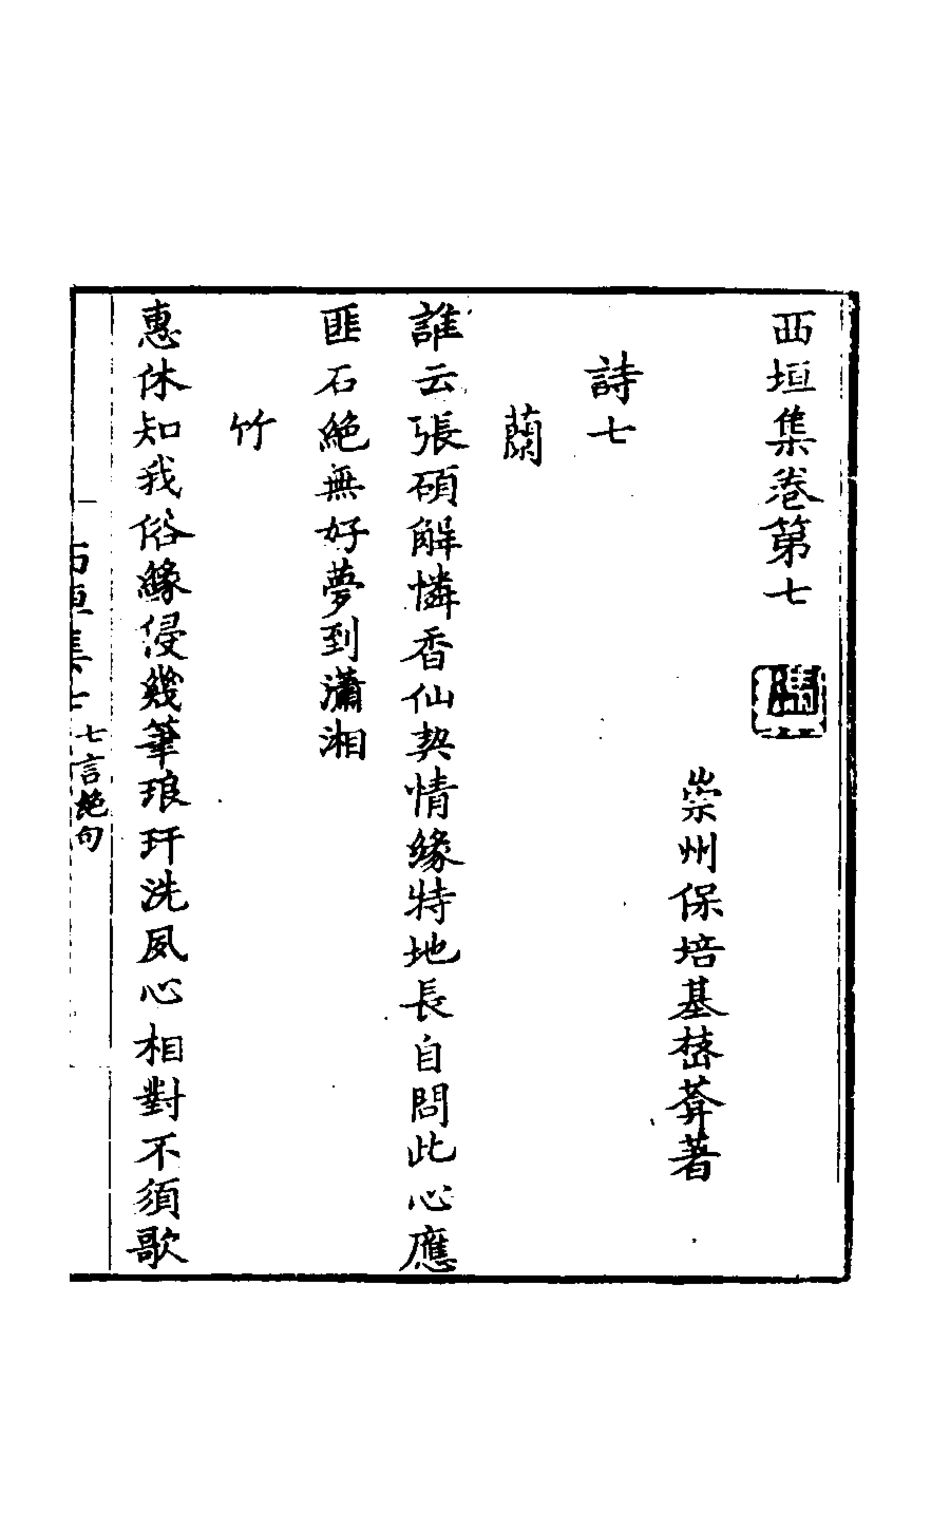 西垣集卷第七
崇州保培基葊著
詩七
蘭
誰云張碩觧憐香仙契情緣特地長自問此心應
匪石絶無好夢到瀟湘
竹
惠休知我俗緣侵幾筆琅玕洗夙心相對不須歌
西垣集七 七言絶句